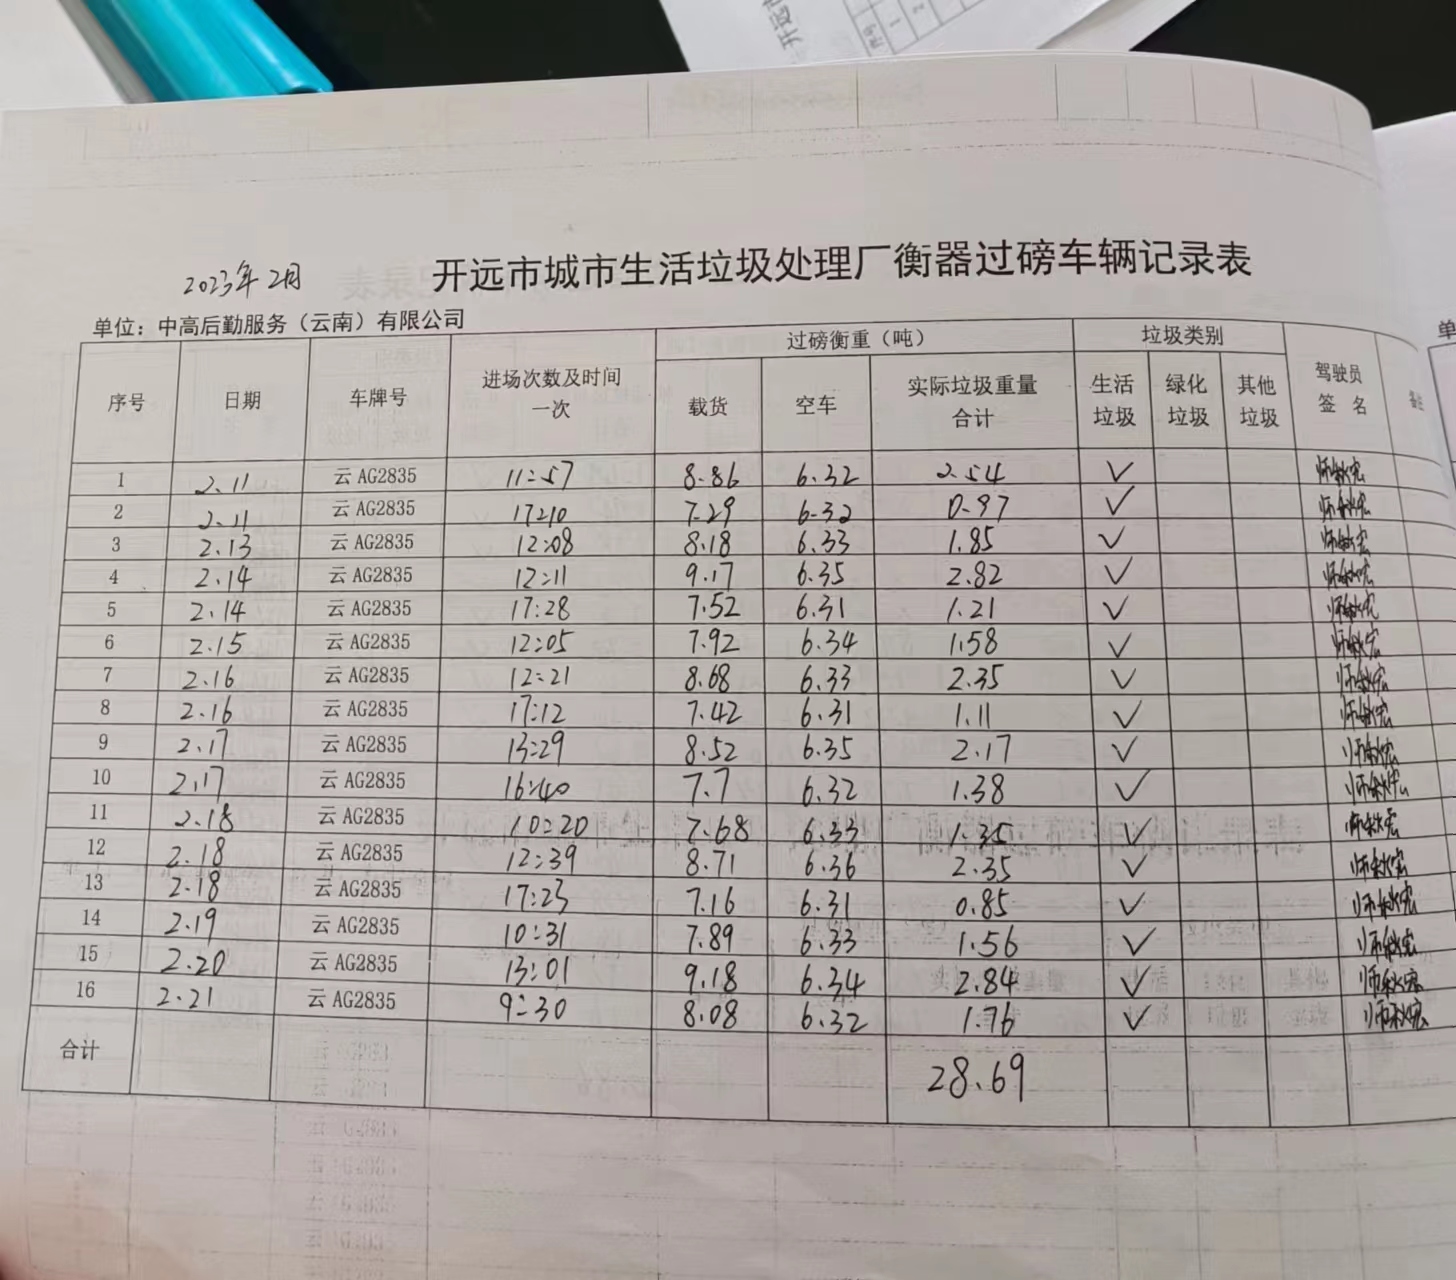 开起
序号 1 2
2023年2月 开远市城市生活垃圾处理厂衡器过磅车辆记录表
单位：中高后勤服务（云南）有限公司
序号 日期 车牌号 进场次数及时间 一次 过磅衡重（吨） 垃圾类别 驾驶员 签 名
载货 空车 实际垃圾重量 合计 生活垃圾 绿化垃圾 其他垃圾
1 2.11 云AG2835 11:57 8.86 6.32 2.54 ✓
2 2.11 云AG2835 17:10 7.29 6.32 0.97 ✓
3 2.13 云AG2835 12:08 8.18 6.33 1.85 ✓
4 2.14 云AG2835 12:11 9.17 6.35 2.82 ✓
5 2.14 云AG2835 17:28 7.52 6.31 1.21 ✓
6 2.15 云AG2835 12:05 7.92 6.34 1.58 ✓
7 2.16 云AG2835 12:21 8.68 6.33 2.35 ✓
8 2.16 云AG2835 17:12 7.42 6.31 1.11 ✓
9 2.17 云AG2835 13:29 8.52 6.35 2.17 ✓
10 2.17 云AG2835 16:40 7.7 6.32 1.38 ✓
11 2.18 云AG2835 10:20 7.68 6.33 1.35 ✓
12 2.18 云AG2835 12:39 8.71 6.36 2.35 ✓
13 2.18 云AG2835 17:23 7.16 6.31 0.85 ✓
14 2.19 云AG2835 10:31 7.89 6.33 1.56 ✓
15 2.20 云AG2835 13:01 9.18 6.34 2.84 ✓
16 2.21 云AG2835 9:30 8.08 6.32 1.76 ✓
合计 28.69